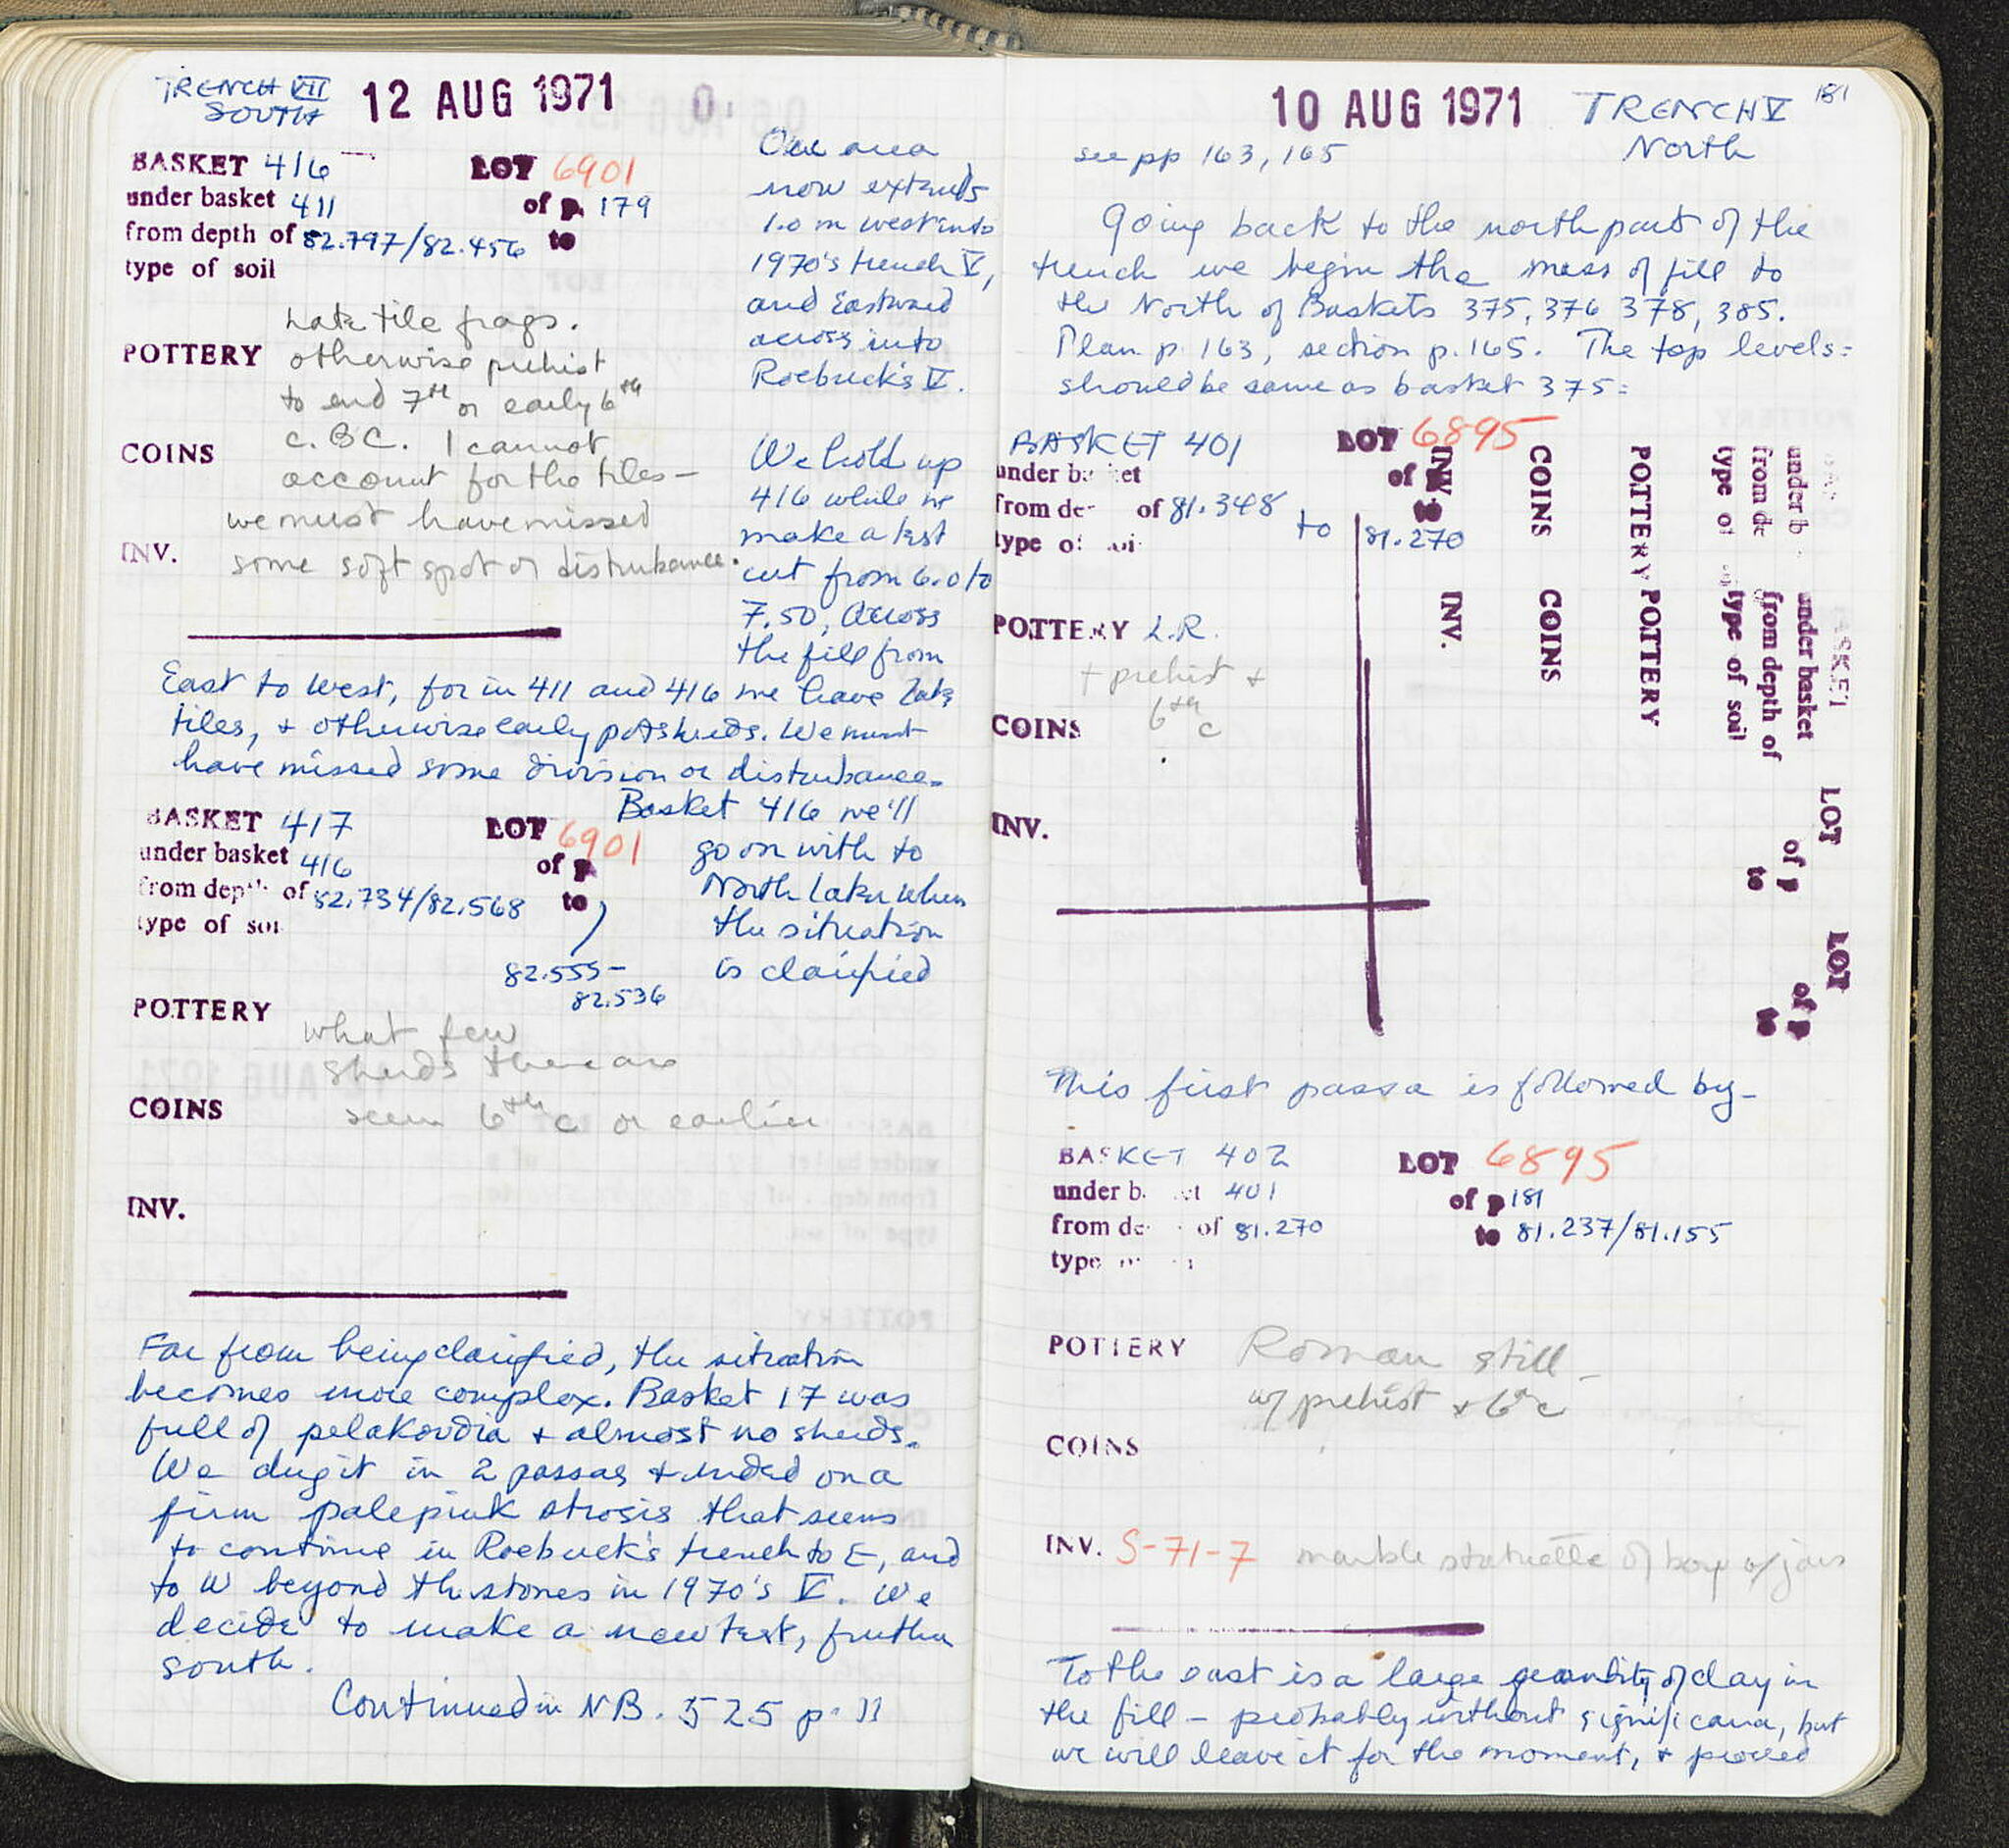 TRENCH VII
SOUTH
12 AUG 1971
BASKET 416 LOT 6901
under basket 411 of p. 179
from depth of 82.797/82.456 to
type of soil
Late tile frags.
POTTERY otherwise prehist
to end 7th or early 6th
c. BC. I cannot
COINS
account for the tiles –
we must have missed
INV. some soft spot or disturbance.
Our area
now extends
1.0 m west into
1970's trench V,
and Eastward
across into
Roebuck's V.
We hold up
416 while we
make a test
cut from 6.0 to
7.50, across
the fill from
East to West, for in 411 and 416 we have late
tiles, + otherwise early potsherds. We must
have missed some division or disturbance.
Basket 416 we'll
go on with to
North later when
the situation
is clarified
BASKET 417 LOT 6901
under basket 416 of p
from depth of 82.734/82.568 to
type of soi
82.555–
82.536
POTTERY what few
sherds there are
COINS seem 6th c or earlier
INV.
Far from being clarified, the situation
becomes more complex. Basket 17 was
full of pelakoudia + almost no sherds.
We dug it in 2 passas + ended on a
firm pale pink strosis that seems
to continue in Roebuck's trench to E, and
to W beyond the stones in 1970's V. We
decide to make a new test, further
south.
Continued in NB. 525 p. 11
10 AUG 1971 TRENCH V
North
181
see pp 163, 165
Going back to the north part of the
trench we begin the mass of fill to
the North of Baskets 375, 376 378, 385.
Plan p 163, section p. 165. The top levels
should be same as basket 375:
BASKET 401 LOT 6895
under ba ket of p
from de of 81.348 to 81.270
type of soi
POTTERY L.R.
+ prehist +
6th c
COINS
INV.
INV.
COINS
POTTERY
type of
from de
under b
INV.
COINS
POTTERY
type of soil
from depth of
under basket
BASKET
LOT
of p
to
LOT
of p
to
This first passa is followed by –
BASKET 402 LOT 6895
under b et 401 of p 181
from de of 81.270 to 81.237/81.155
type
POTTERY Roman still –
w/ prehist + 6th c
COINS
INV. S-71-7 marble statuette of boy w/ jar
To the east is a large quantity of clay in
the fill – probably without significance, but
we will leave it for the moment, + proceed